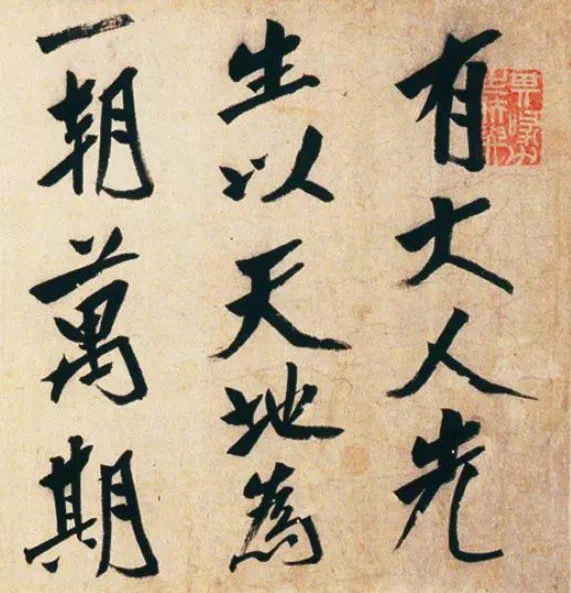 有大人先
生以天地為
一朝萬期